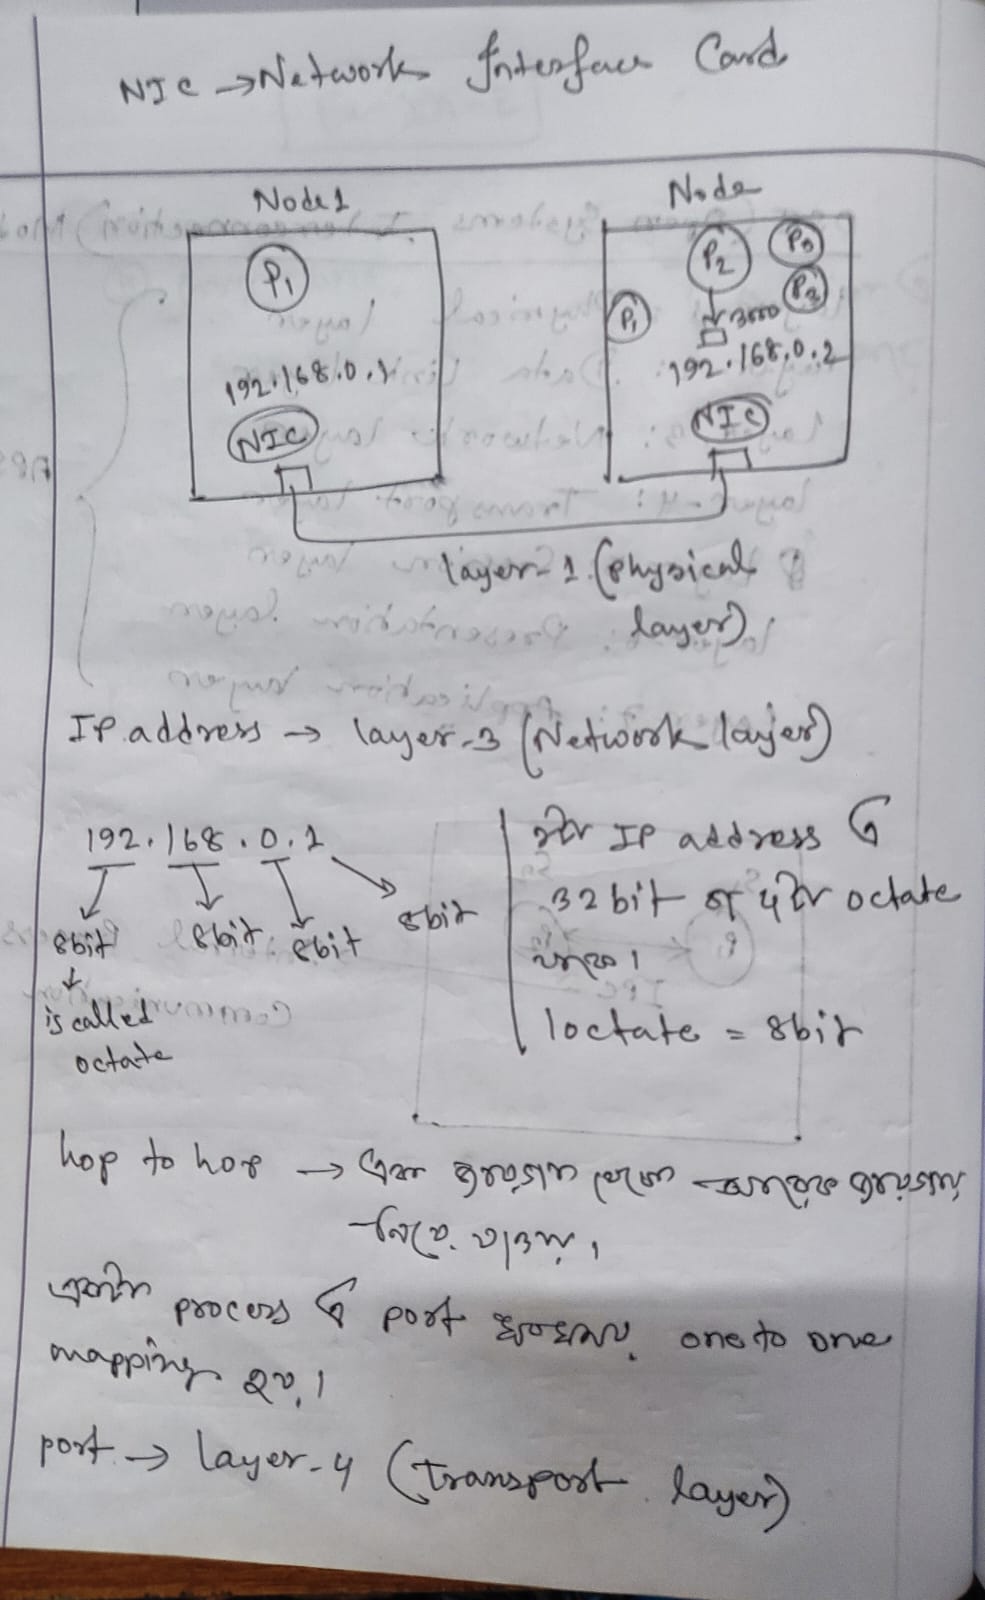 NIC → Network Interface Card
Node 1
Node
P1
P2
P3
P3
P1
3000
192.168.0.1
192.168.0.2
NIC
NIC
layer-1 (physical
layer)
IP address → layer-3 (Network layer)
192.168.0.1
8bit 8bit 8bit 8bit
↓
is called
octate
IP address এ
32 bit বা 4টি octate
থাকে।
1octate = 8bit
hop to hop → এক থেকে
নিয়ে যাওয়া।
একটা process এ port one to one
mapping হয়।
port → layer-4 (transport layer)